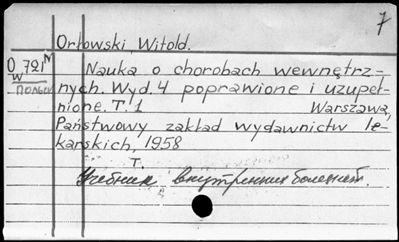 7
Orłowski, Witold.
O 721 N
W
польск
Nauka o chorobach wewnętrz-
nych. Wyd. 4 poprawione i uzupeł-
nione. T. 1 Warszawa,
Państwowy zakład wydawnictw le-
karskich, 1958
T.
Учебник внутренних болезней.